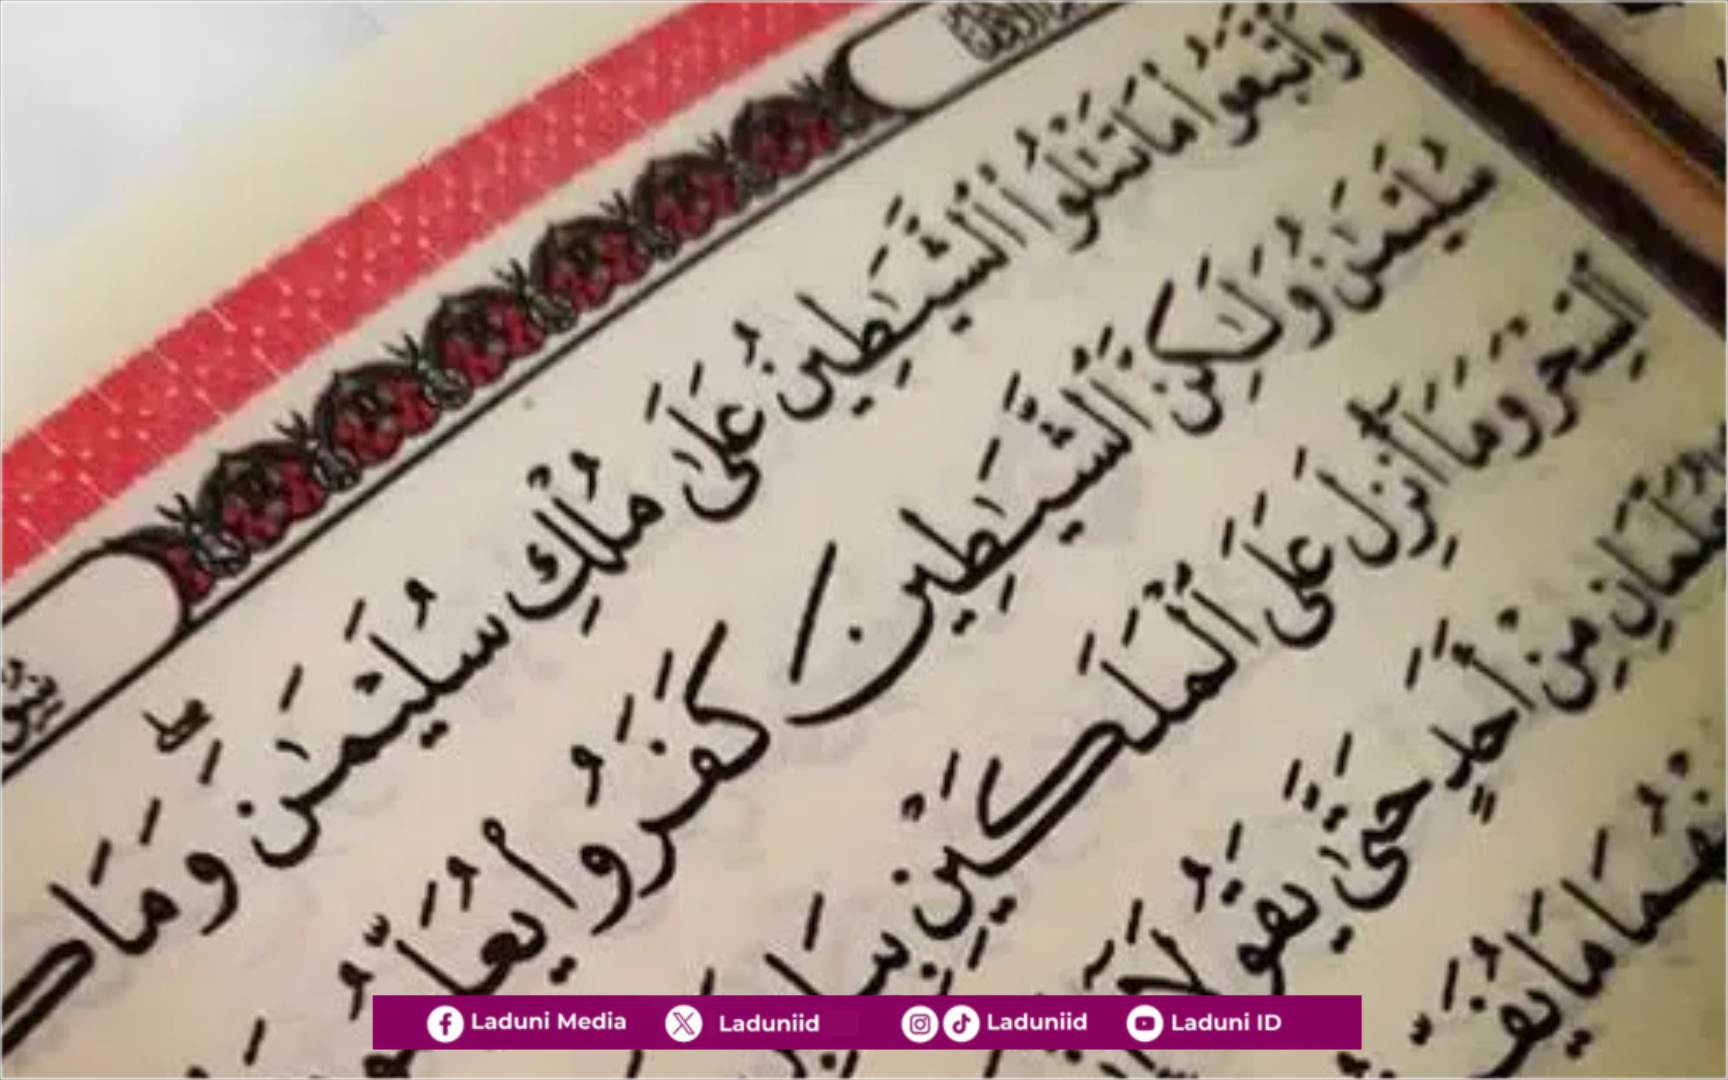 وَاتَّبَعُوا۟ مَا تَتْلُوا۟ ٱلشَّيَـٰطِينُ عَلَىٰ مُلْكِ سُلَيْمَـٰنَ ۖ وَمَا ك
سُلَيْمَـٰنُ وَلَـٰكِنَّ ٱلشَّيَـٰطِينَ كَفَرُوا۟ يُعَلِّمُو
ٱلسِّحْرَ وَمَآ أُنزِلَ عَلَى ٱلْمَلَكَيْنِ بِبَابِ
يُعَلِّمَانِ مِنْ أَحَدٍ حَتَّىٰ يَقُولَآ
مَا يُفَرِّ
Laduni Media Laduniid Laduniid Laduni ID